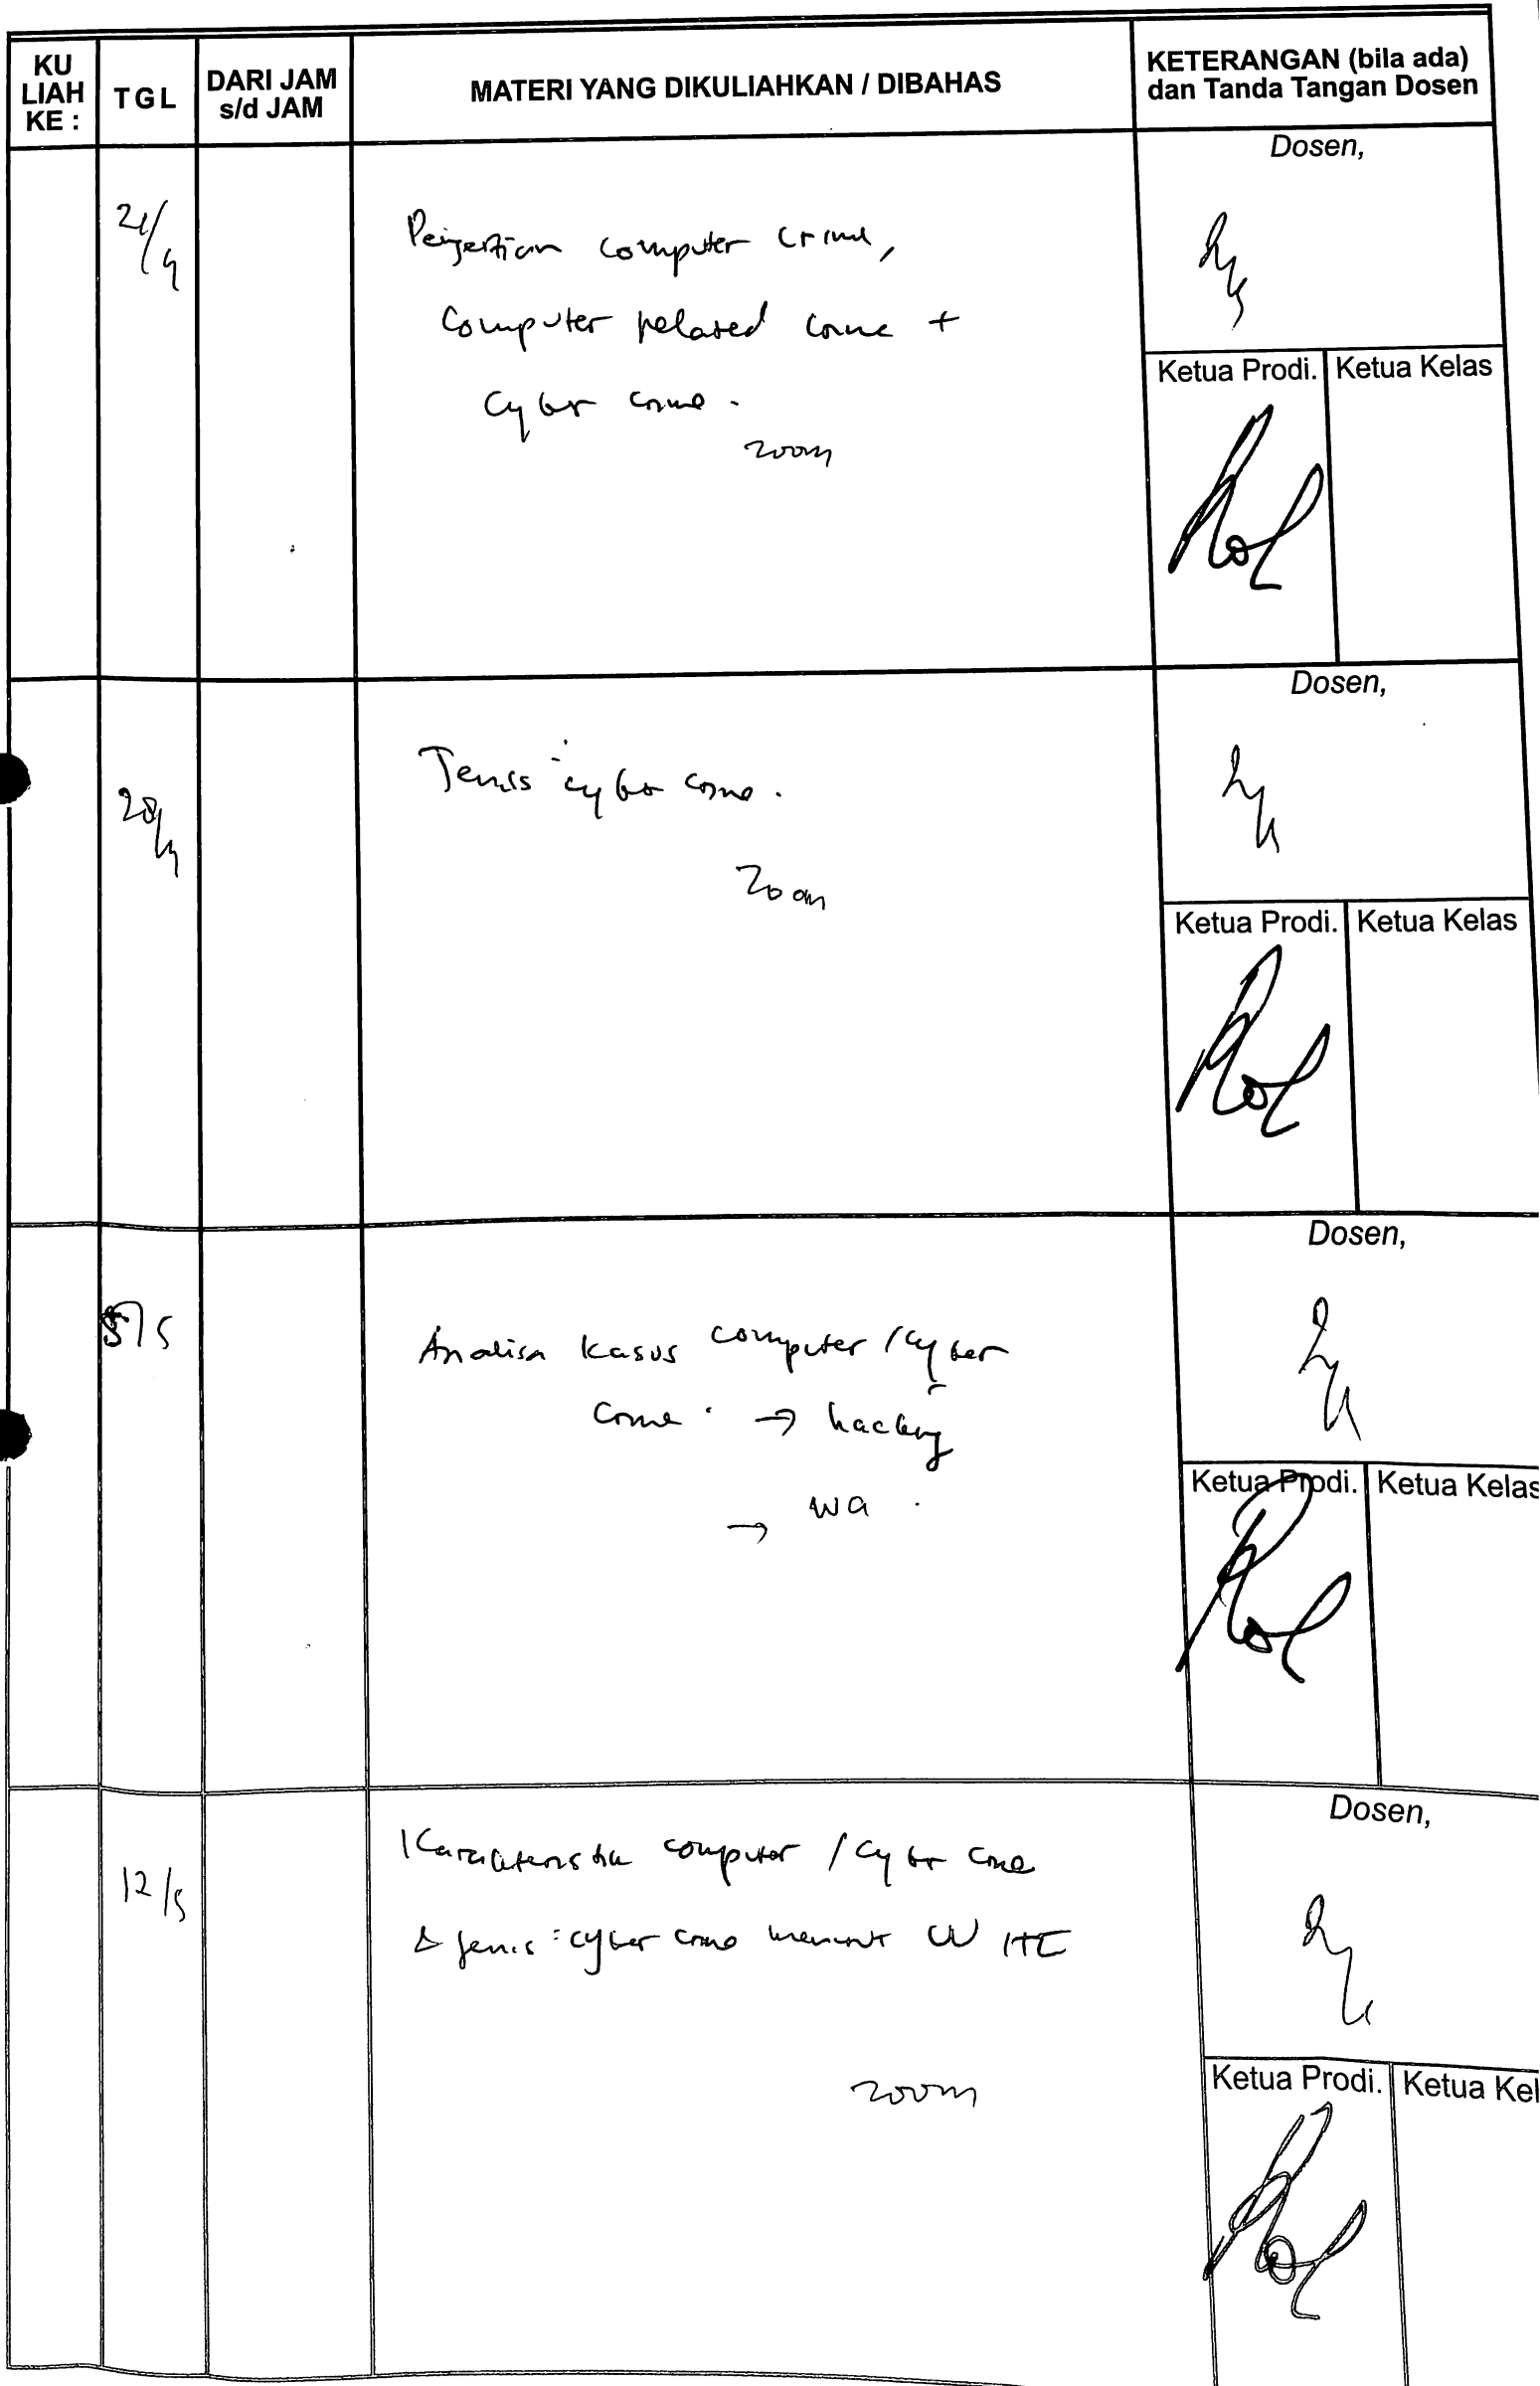 KU LIAH KE : TGL DARI JAM s/d JAM MATERI YANG DIKULIAHKAN / DIBAHAS KETERANGAN (bila ada) dan Tanda Tangan Dosen
Dosen,
21/4
Pengertian computer crime,
Computer related crime +
Cyber crime.
zoom
Ketua Prodi. Ketua Kelas
Dosen,
28/4
Jenis² cyber crime.
Zoom
Ketua Prodi. Ketua Kelas
Dosen,
5/5
Analisa kasus computer / cyber
crime. → hacking
→ WA.
Ketua Prodi. Ketua Kelas
Dosen,
12/5
Karakteristik computer / cyber crime
& jenis² cyber crime menurut UU ITE
zoom
Ketua Prodi. Ketua Kel